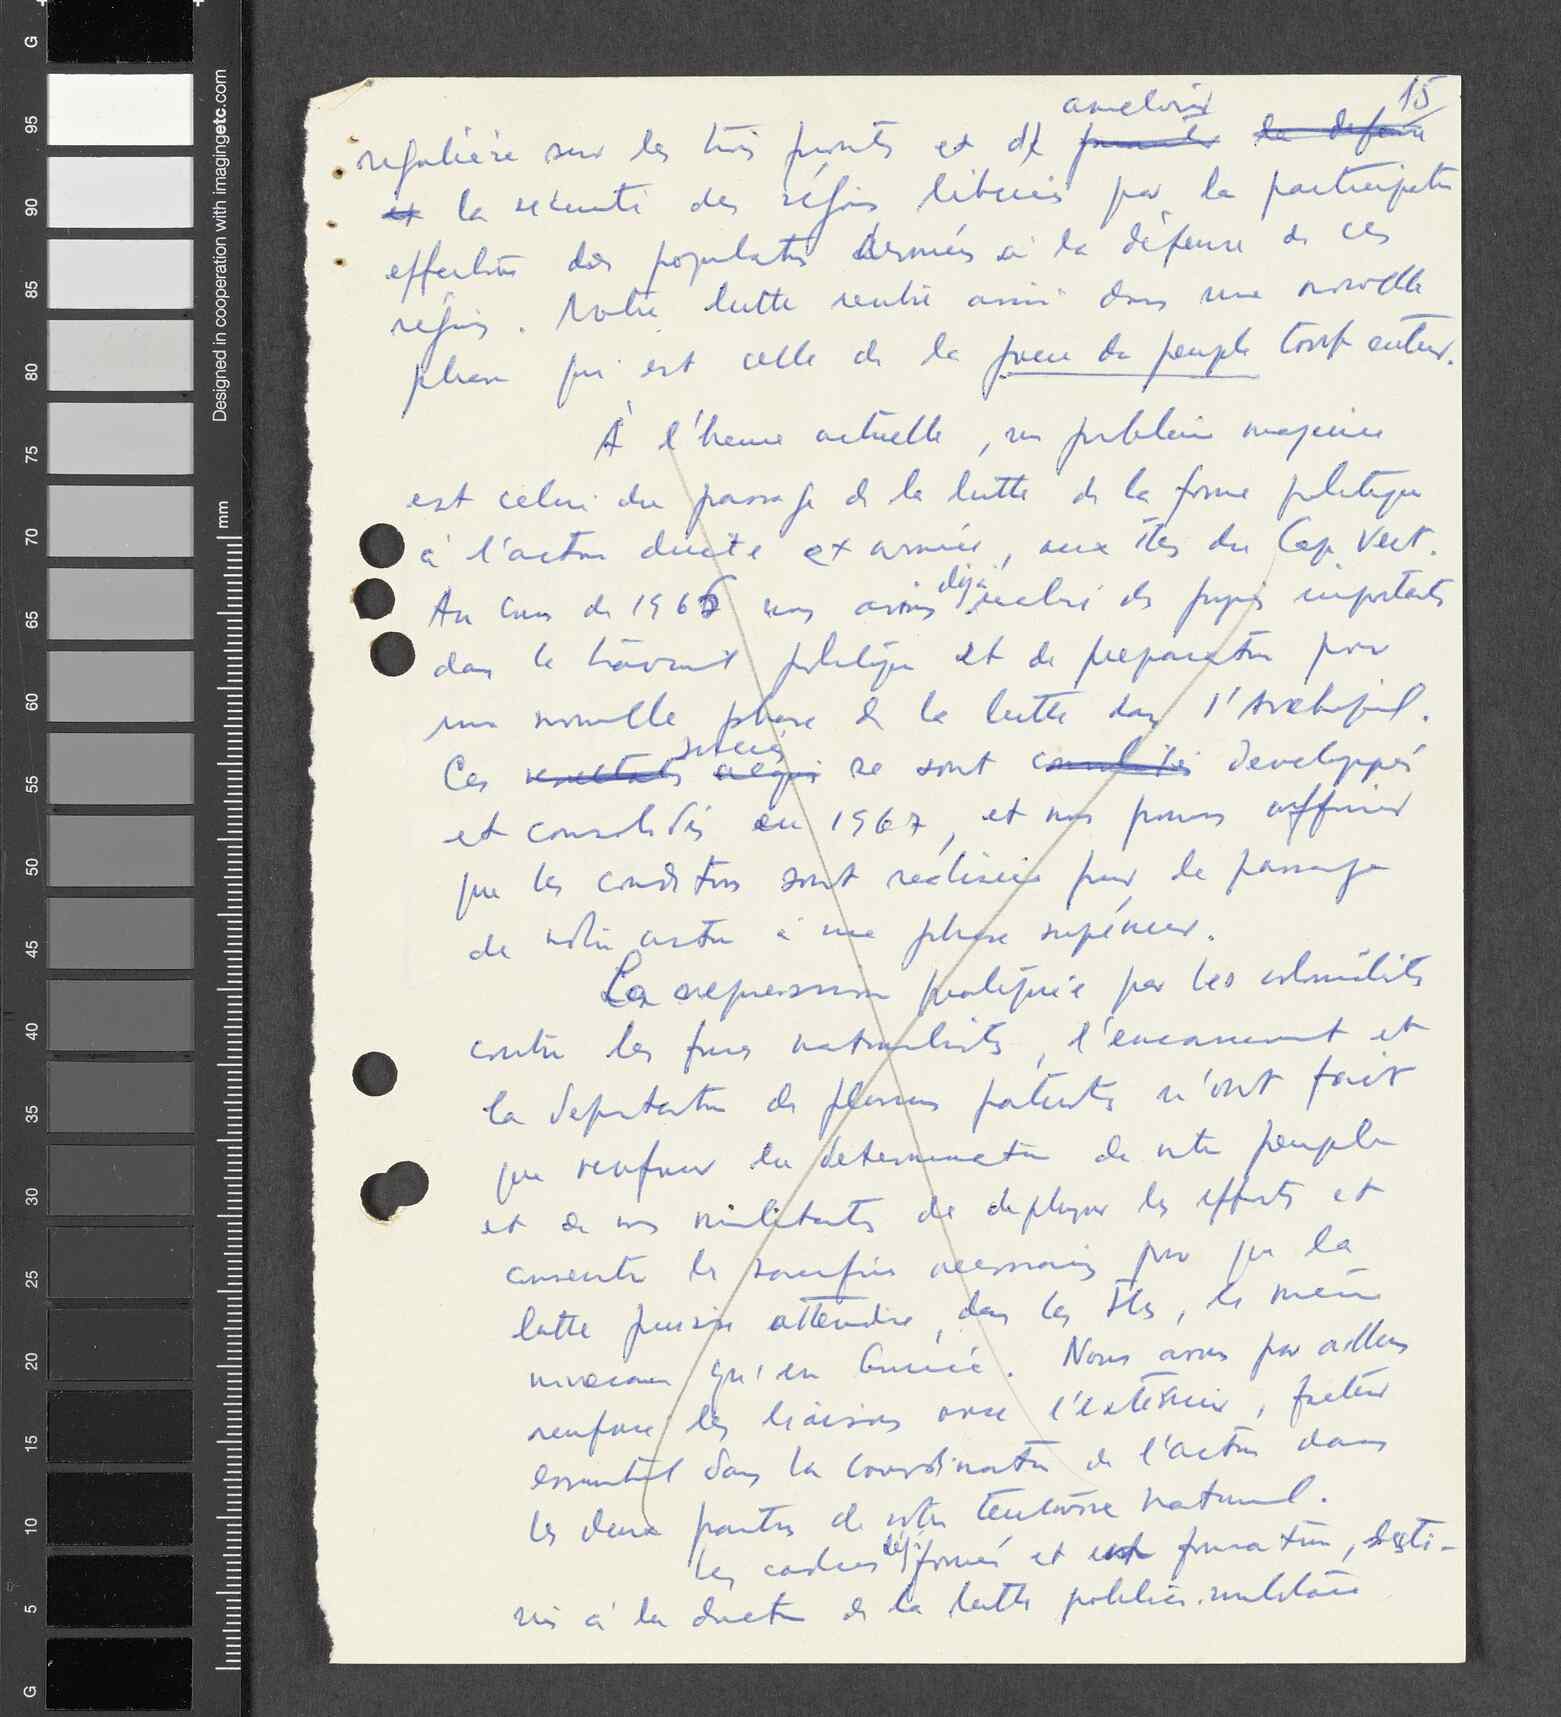 15
régulière sur les trois fronts et de améliorer
la sécurité des régions libérées par la participation
effective des populations armées à la défense de ces
régions. Notre lutte rentre ainsi dans une nouvelle
phase qui est celle de la guerre du peuple tout entier.
À l'heure actuelle, un problème majeur
est celui du passage de la lutte de la forme politique
à l'action directe et armée, aux îles du Cap Vert.
Au cours de 1966 nous avions déjà réalisé des progrès importants
dans le travail politique et de préparation pour
une nouvelle phase de la lutte dans l'Archipel.
Ces résultats acquis succès se sont consolidés développés
et consolidés en 1967, et nous pouvons affirmer
que les conditions sont réalisées pour le passage
de notre action à une phase supérieure.
La repression pratiquée par les colonialistes
contre les forces nationalistes, l'encerclement et
la déportation de plusieurs patriotes n'ont fait
que renforcer la détermination de notre peuple
et de nos militants de deployer les efforts et
consentir les sacrifices nécessaires pour que la
lutte puisse atteindre, dans les îles, le même
niveau qu'en Guinée. Nous avons par ailleurs
renforcé les liaisons avec l'extérieur, facteur
essentiel dans la coordination de l'action dans
les deux parties de notre territoire national.
Les cadres déjà formés et en formation, desti-
nés à la direction de la lutte politico-militaire